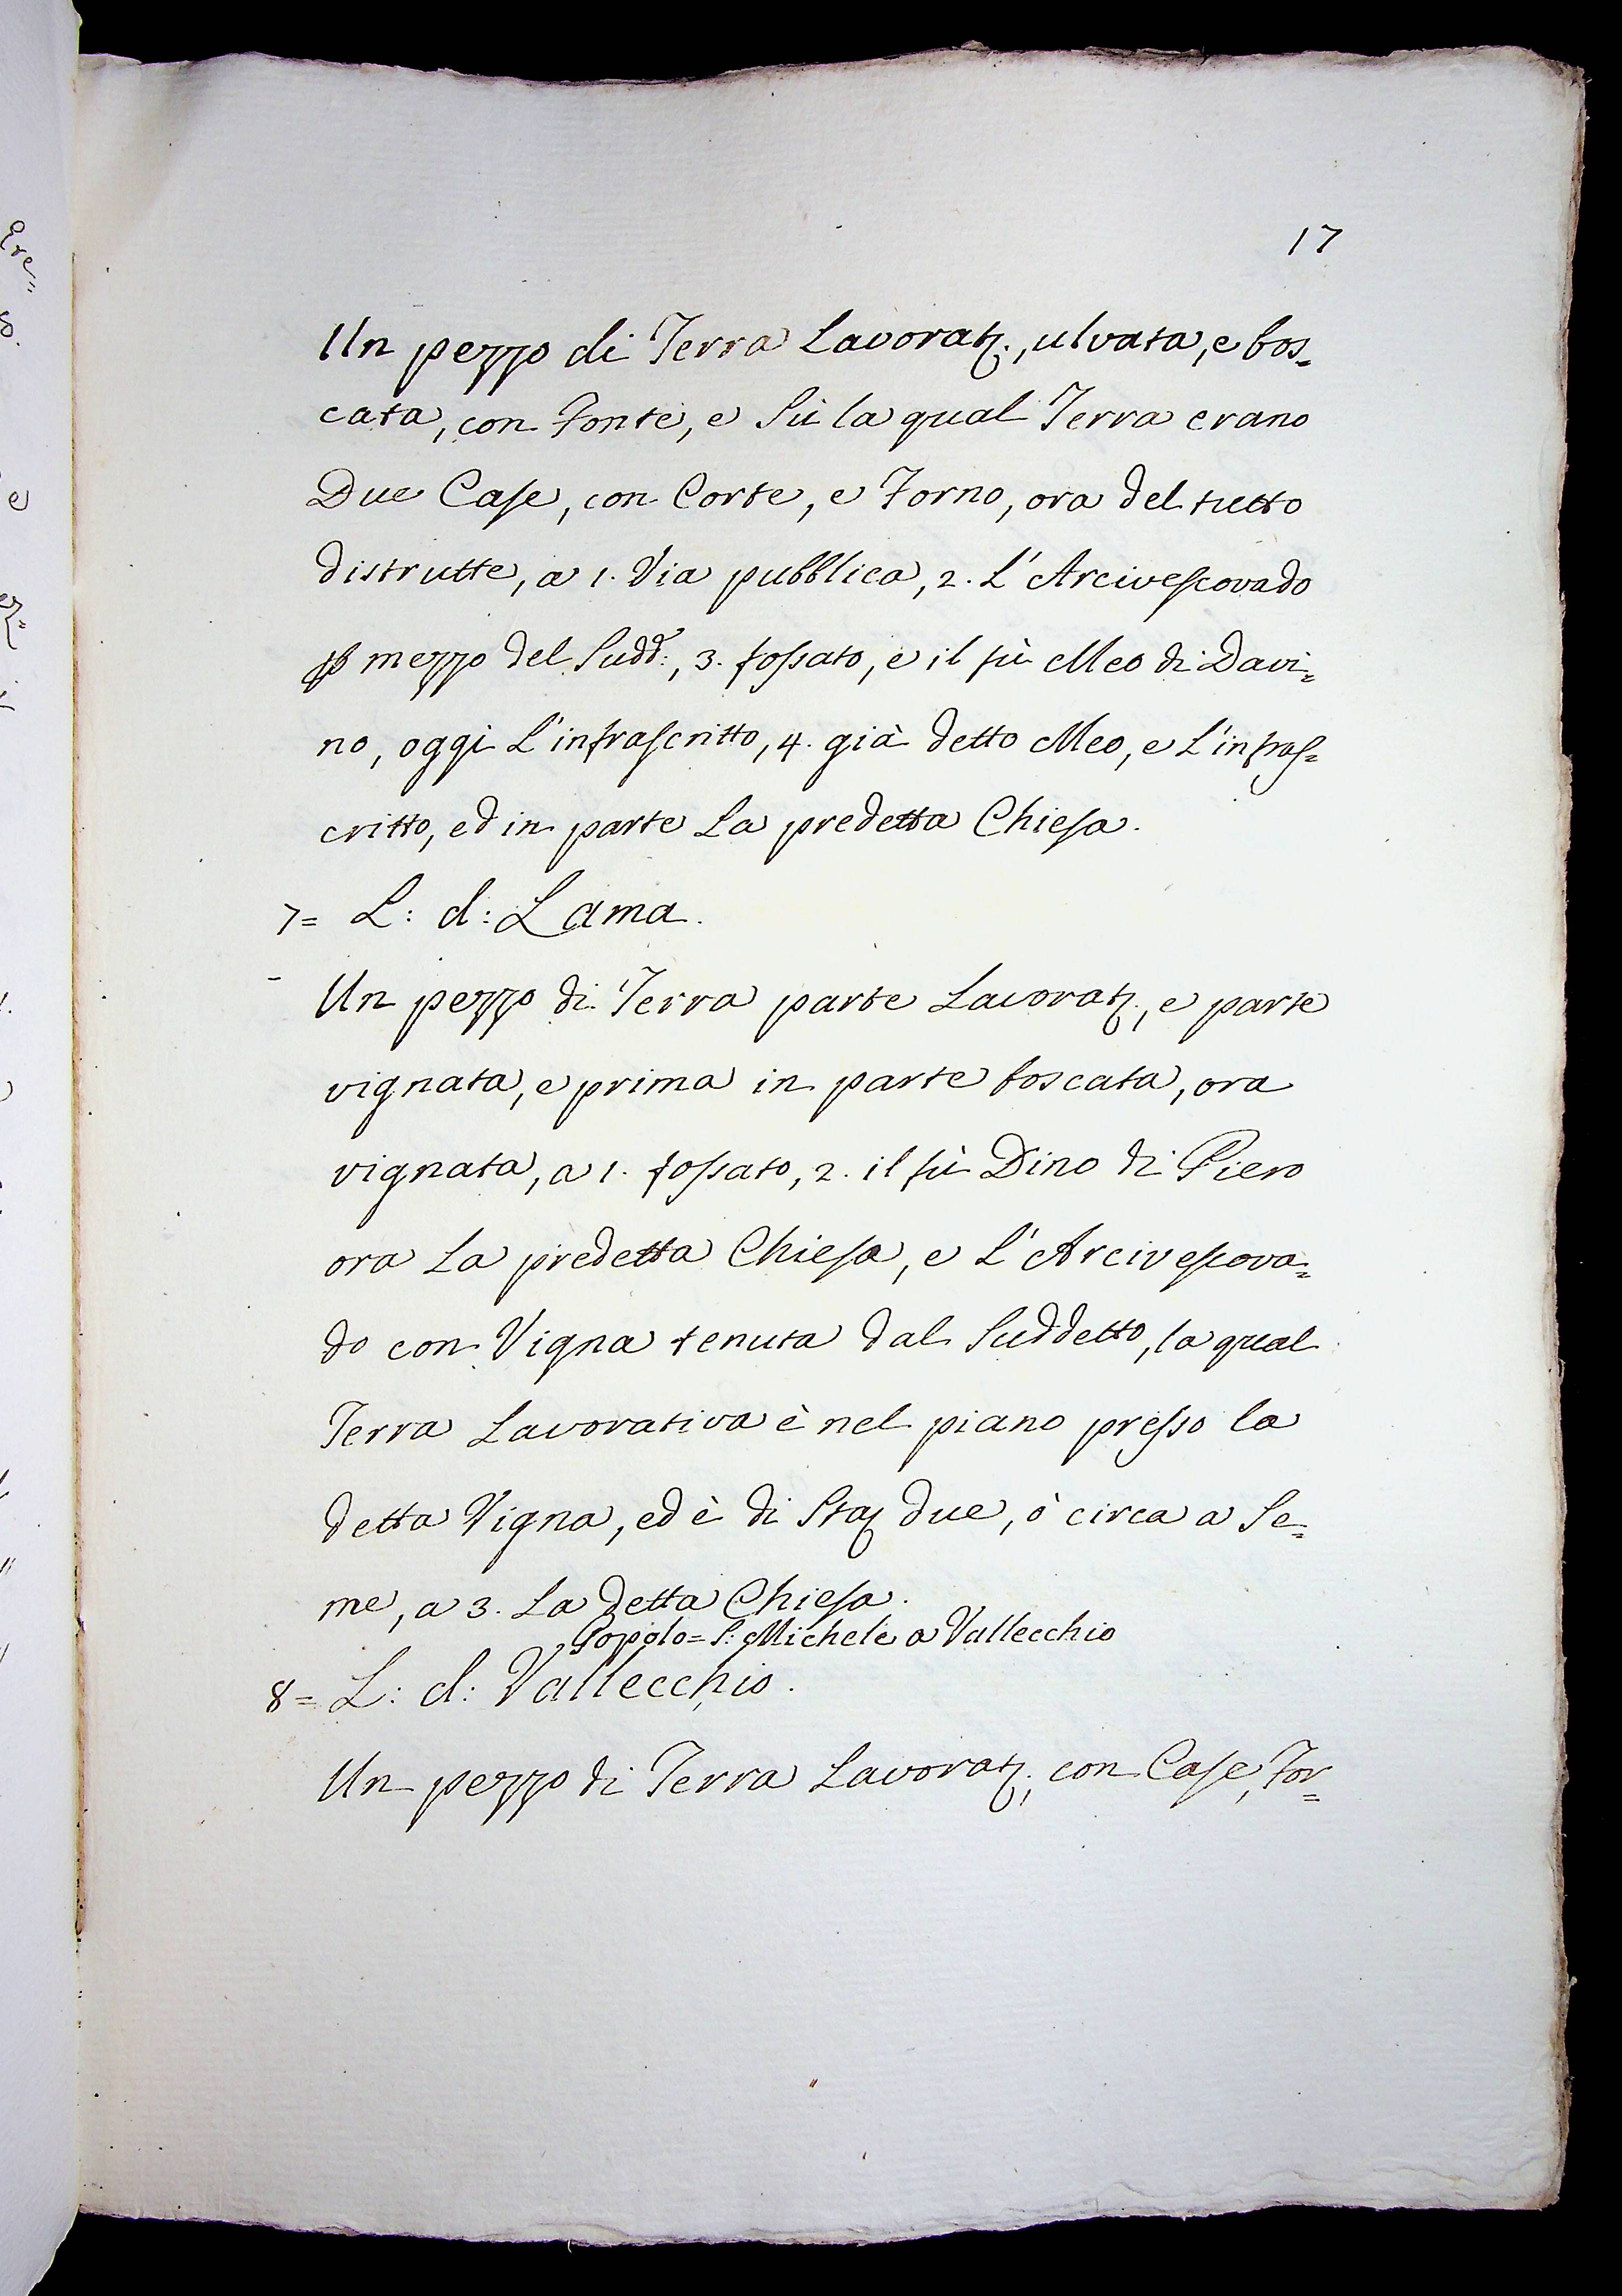 17
Un pezzo di Terra Lavoratᵃ., ulvata, e bos=
cata, con Fonte, e Sù la qual Terra erano
Due Case, con Corte, e Forno, ora del tutto
distrutte, a 1. Via pubblica, 2. L'Arcivescovado
ꝑ mezzo del Sudd:, 3. fossato, e il fù Meo di Davi=
no, oggi L'infrascritto, 4. già detto Meo, e L'infras=
critto, ed in parte La predetta Chiesa.
7= L: d: Lama.
Un pezzo di Terra parte Lavoratᵃ., e parte
vignata, e prima in parte boscata, ora
vignata, a 1. fossato, 2. il fù Dino di Piero
ora La predetta Chiesa, e L'Arcivescova=
do con Vigna tenuta dal Suddetto, la qual
Terra Lavorativa è nel piano presso la
detta Vigna, ed è di Staᵃ due, ò circa a Se=
me, a 3. La detta Chiesa.
Popolo= S: Michele a Vallecchio
8= L: d: Vallecchio.
Un pezzo di Terra Lavoratᵃ. con Case, For=